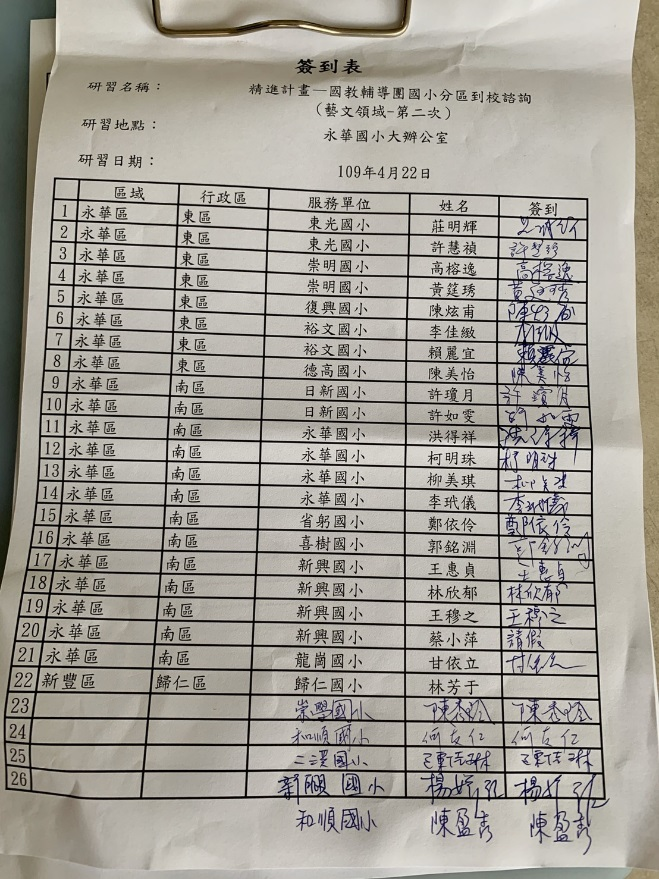 簽到表
研習名稱： 精進計畫—國教輔導團國小分區到校諮詢
（藝文領域-第二次）
研習地點： 永華國小大辦公室
研習日期： 109年4月22日
區域 行政區 服務單位 姓名 簽到
1 永華區 東區 東光國小 莊明輝
2 永華區 東區 東光國小 許慧禎
3 永華區 東區 崇明國小 高榕逸 高榕逸
4 永華區 東區 崇明國小 黃筵琇 黃筵琇
5 永華區 東區 復興國小 陳炫甫
6 永華區 東區 裕文國小 李佳緻
7 永華區 東區 裕文國小 賴麗宜 賴麗宜
8 永華區 東區 德高國小 陳美怡 陳美怡
9 永華區 南區 日新國小 許瓊月 許瓊月
10 永華區 南區 日新國小 許如雯 許如雯
11 永華區 南區 永華國小 洪得祥
12 永華區 南區 永華國小 柯明珠 柯明珠
13 永華區 南區 永華國小 柳美琪
14 永華區 南區 永華國小 李玳儀 李玳儀
15 永華區 南區 省躬國小 鄭依伶 鄭依伶
16 永華區 南區 喜樹國小 郭銘淵
17 永華區 南區 新興國小 王惠貞 王惠貞
18 永華區 南區 新興國小 林欣郁 林欣郁
19 永華區 南區 新興國小 王穆之 王穆之
20 永華區 南區 新興國小 蔡小萍 請假
21 永華區 南區 龍崗國小 甘依立
22 新豐區 歸仁區 歸仁國小 林芳于
23 崇學國小
24 和順國小 何友仁 何友仁
25 二溪國小
26 國小
和順國小 陳盈秀 陳盈秀